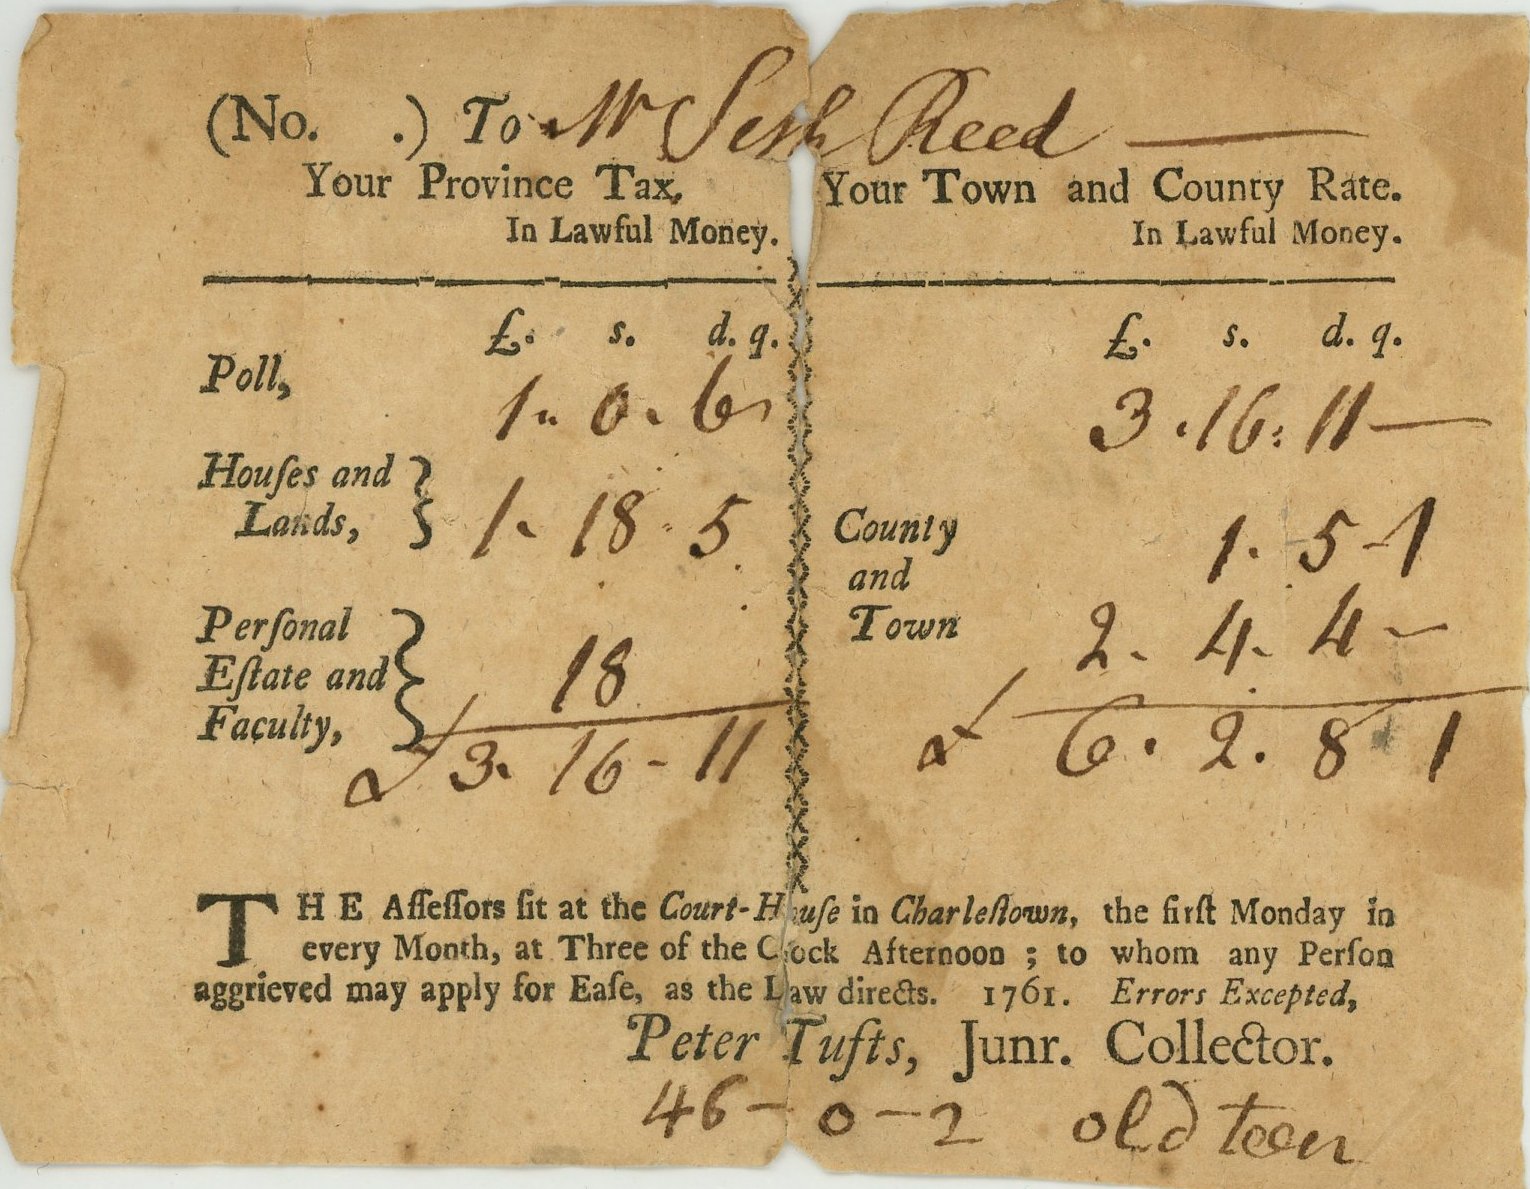 (No. .) To Mr Seth Reed
Your Province Tax,
In Lawful Money.
£. s. d. q.
Poll, 1 .. 0 . 6
Houſes and
Lands, } 1 . 18 . 5
Perſonal
Eſtate and
Faculty, } 18
£ 3 . 16 - 11
Your Town and County Rate.
In Lawful Money.
£. s. d. q.
3 . 16 : 11 —
County 1 . 5 - 1
and
Town 2 . 4 . 4 —
£ 6 . 2 . 8 1
THE Aſſeſſors ſit at the Court-Houſe in Charleſtown, the firſt Monday in
every Month, at Three of the Clock Afternoon ; to whom any Perſon
aggrieved may apply for Eaſe, as the Law directs. 1761. Errors Excepted,
Peter Tufts, Junr. Collector.
46 — 0 — 2 old tenr